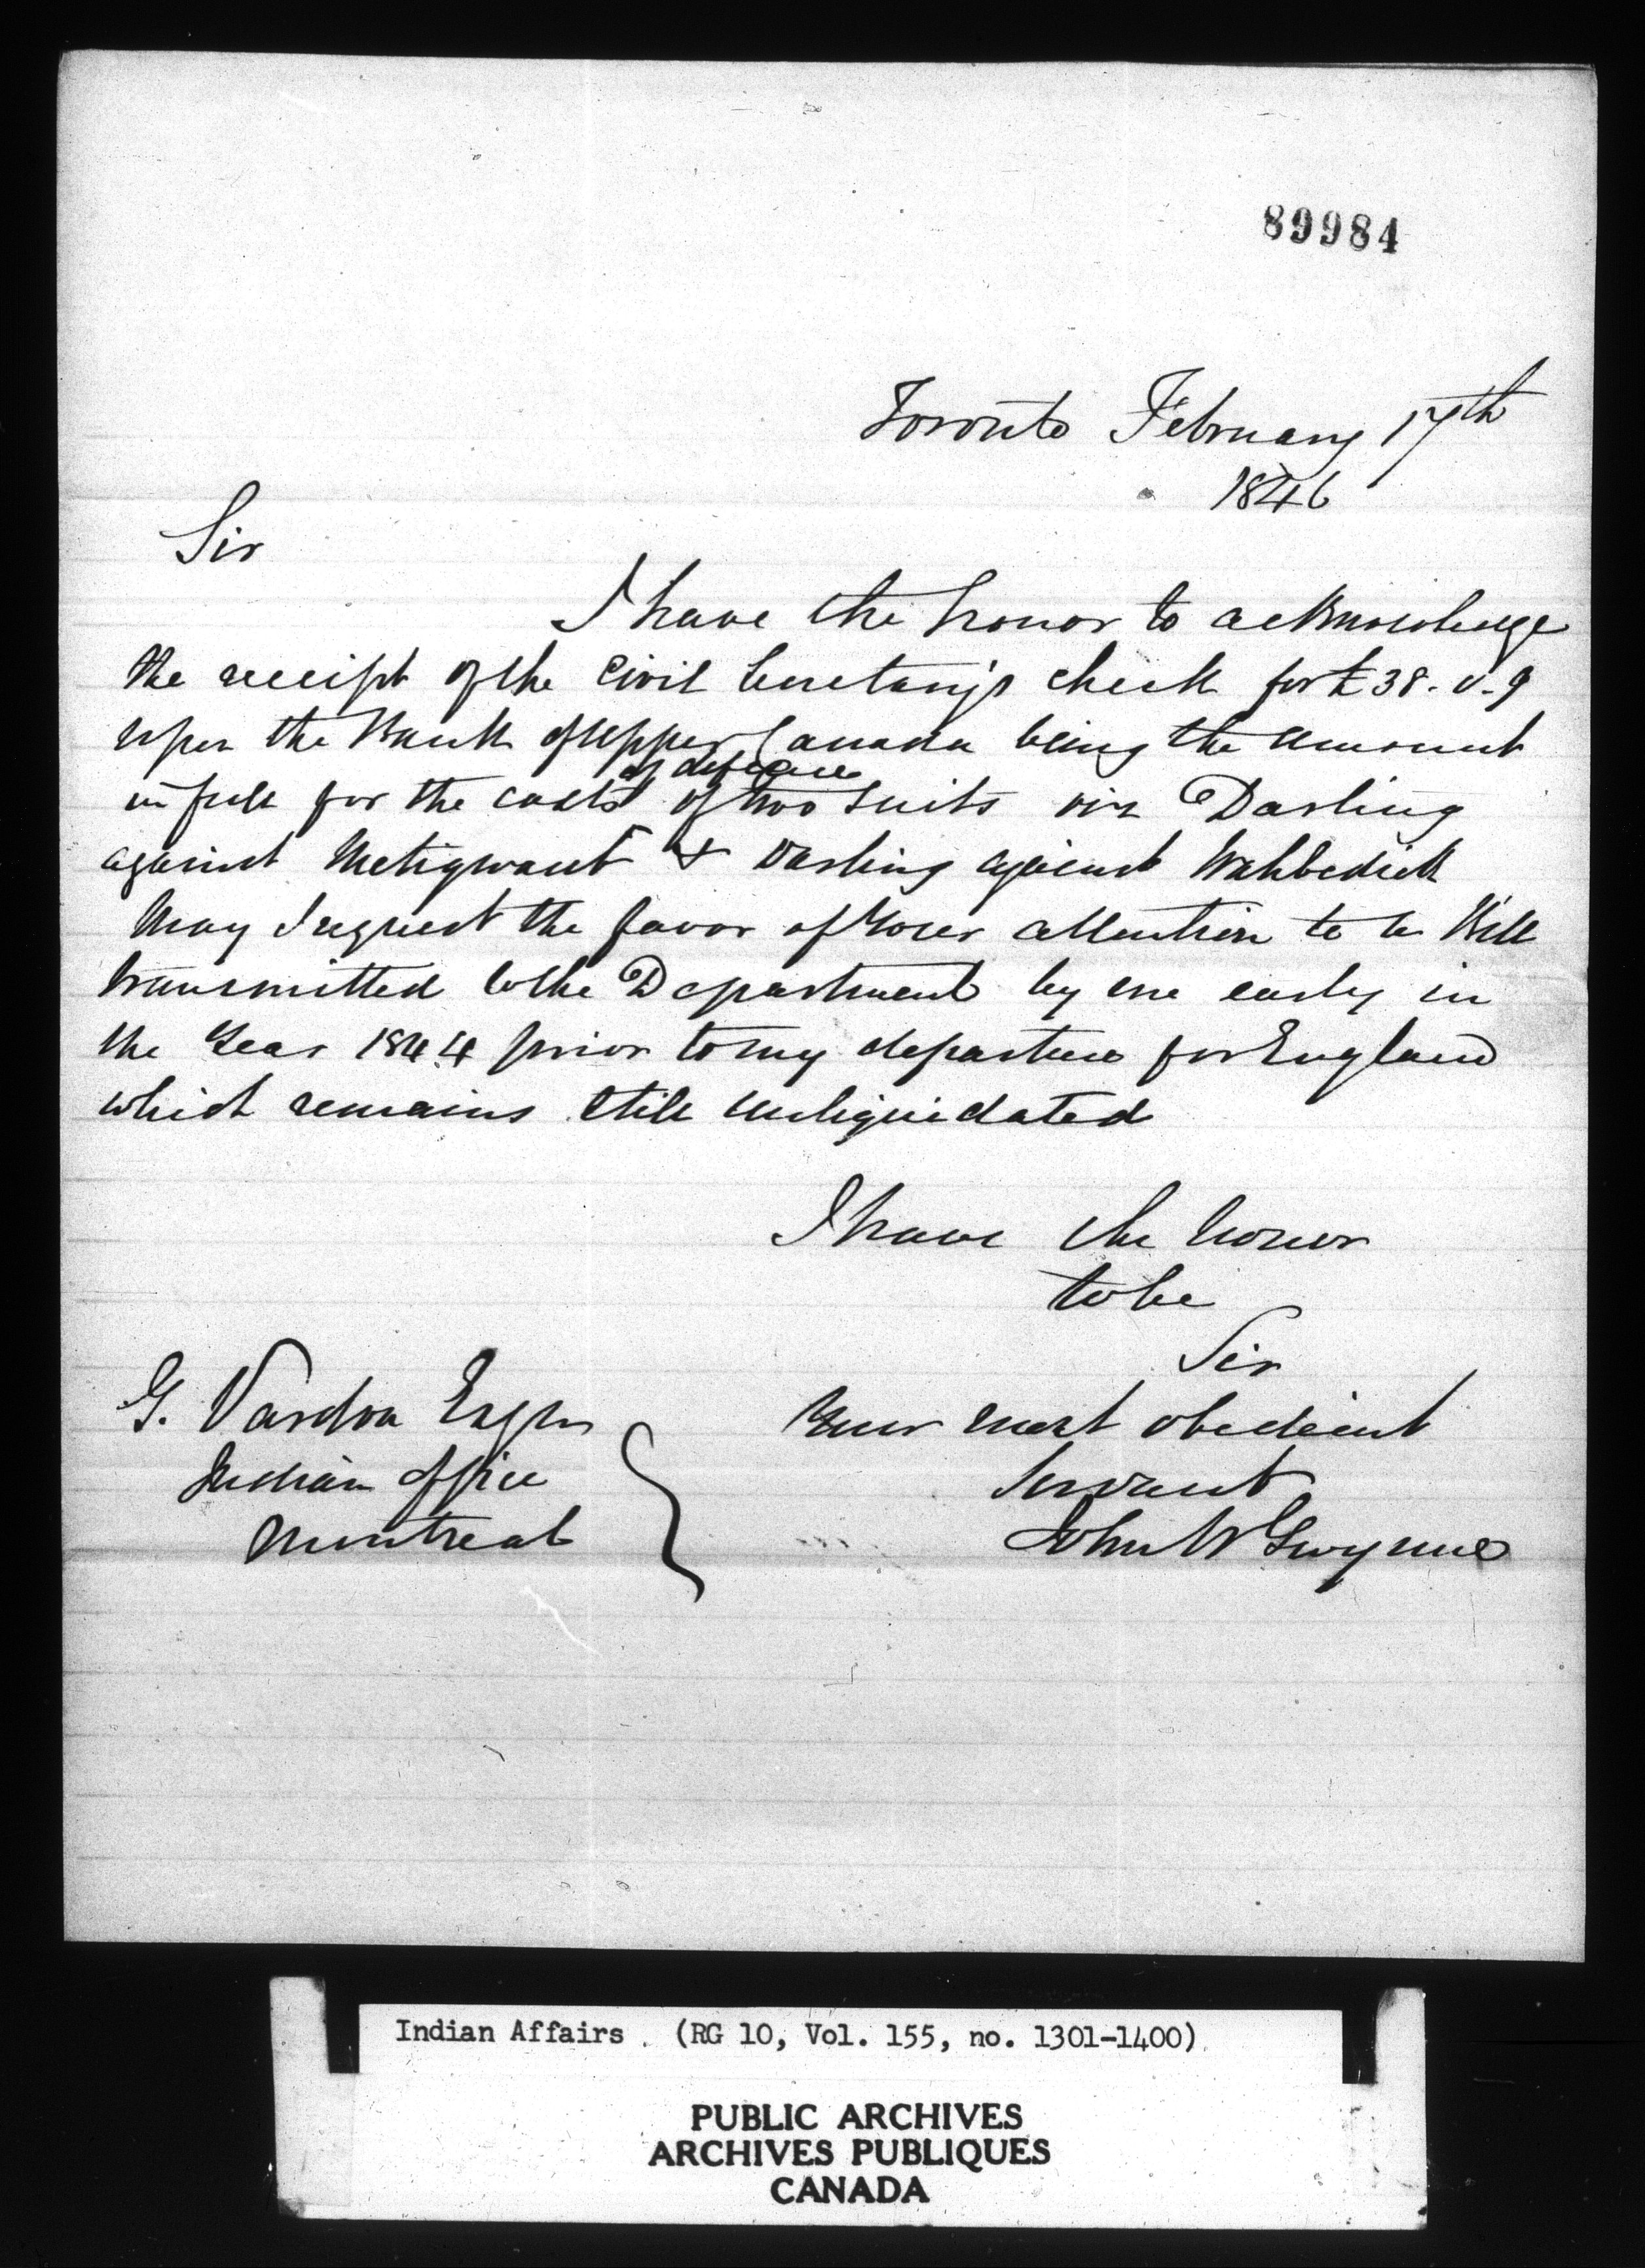 89984
Toronto February 17th
1846
Sir
I have the honor to acknowledge
the receipt of the Civil Secretary's check for £38. 0. 9
upon the Bank of Upper Canada being the amount
of defence
in full for the costs of two suits viz Darling
against Metigwaub & Darling against Wahbedick
May I request the favor of your attention to a Bill
transmitted to the Department by me early in
the Year 1844 prior to my departure for England
which remains still unliquidated
I have the honor
to be
Sir
Your most obedient
Servant
John W Gwynne
G. Vardon Esqre
Indian Office
Montreal
Indian Affairs. (RG 10, Vol. 155, no. 1301-1400)
PUBLIC ARCHIVES
ARCHIVES PUBLIQUES
CANADA